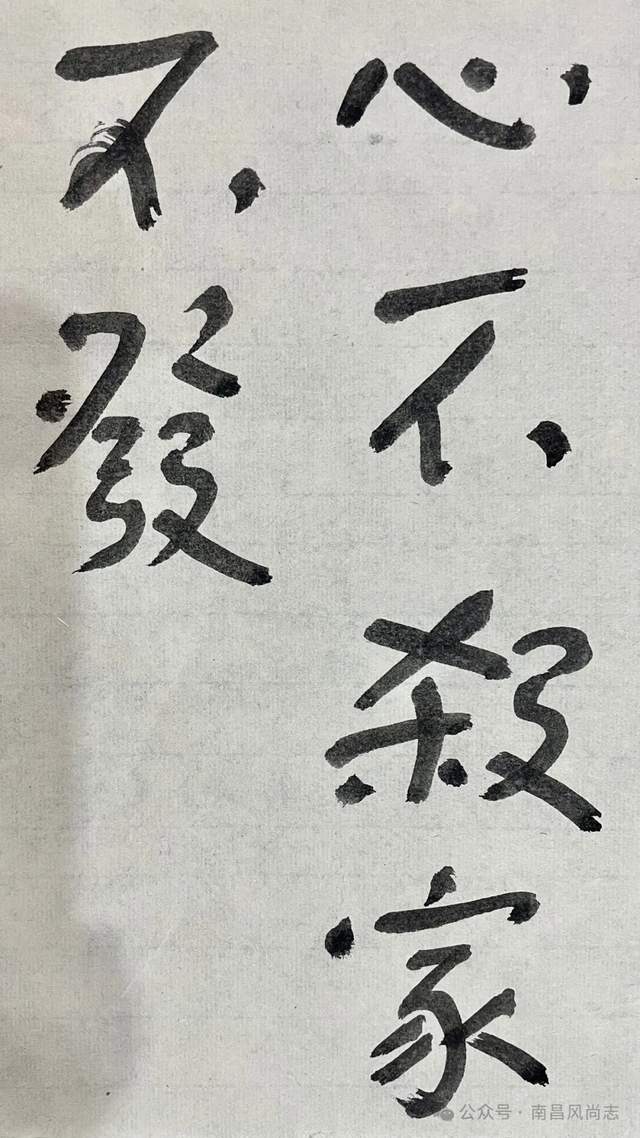 心不殺家
不發
公众号·南昌风尚志